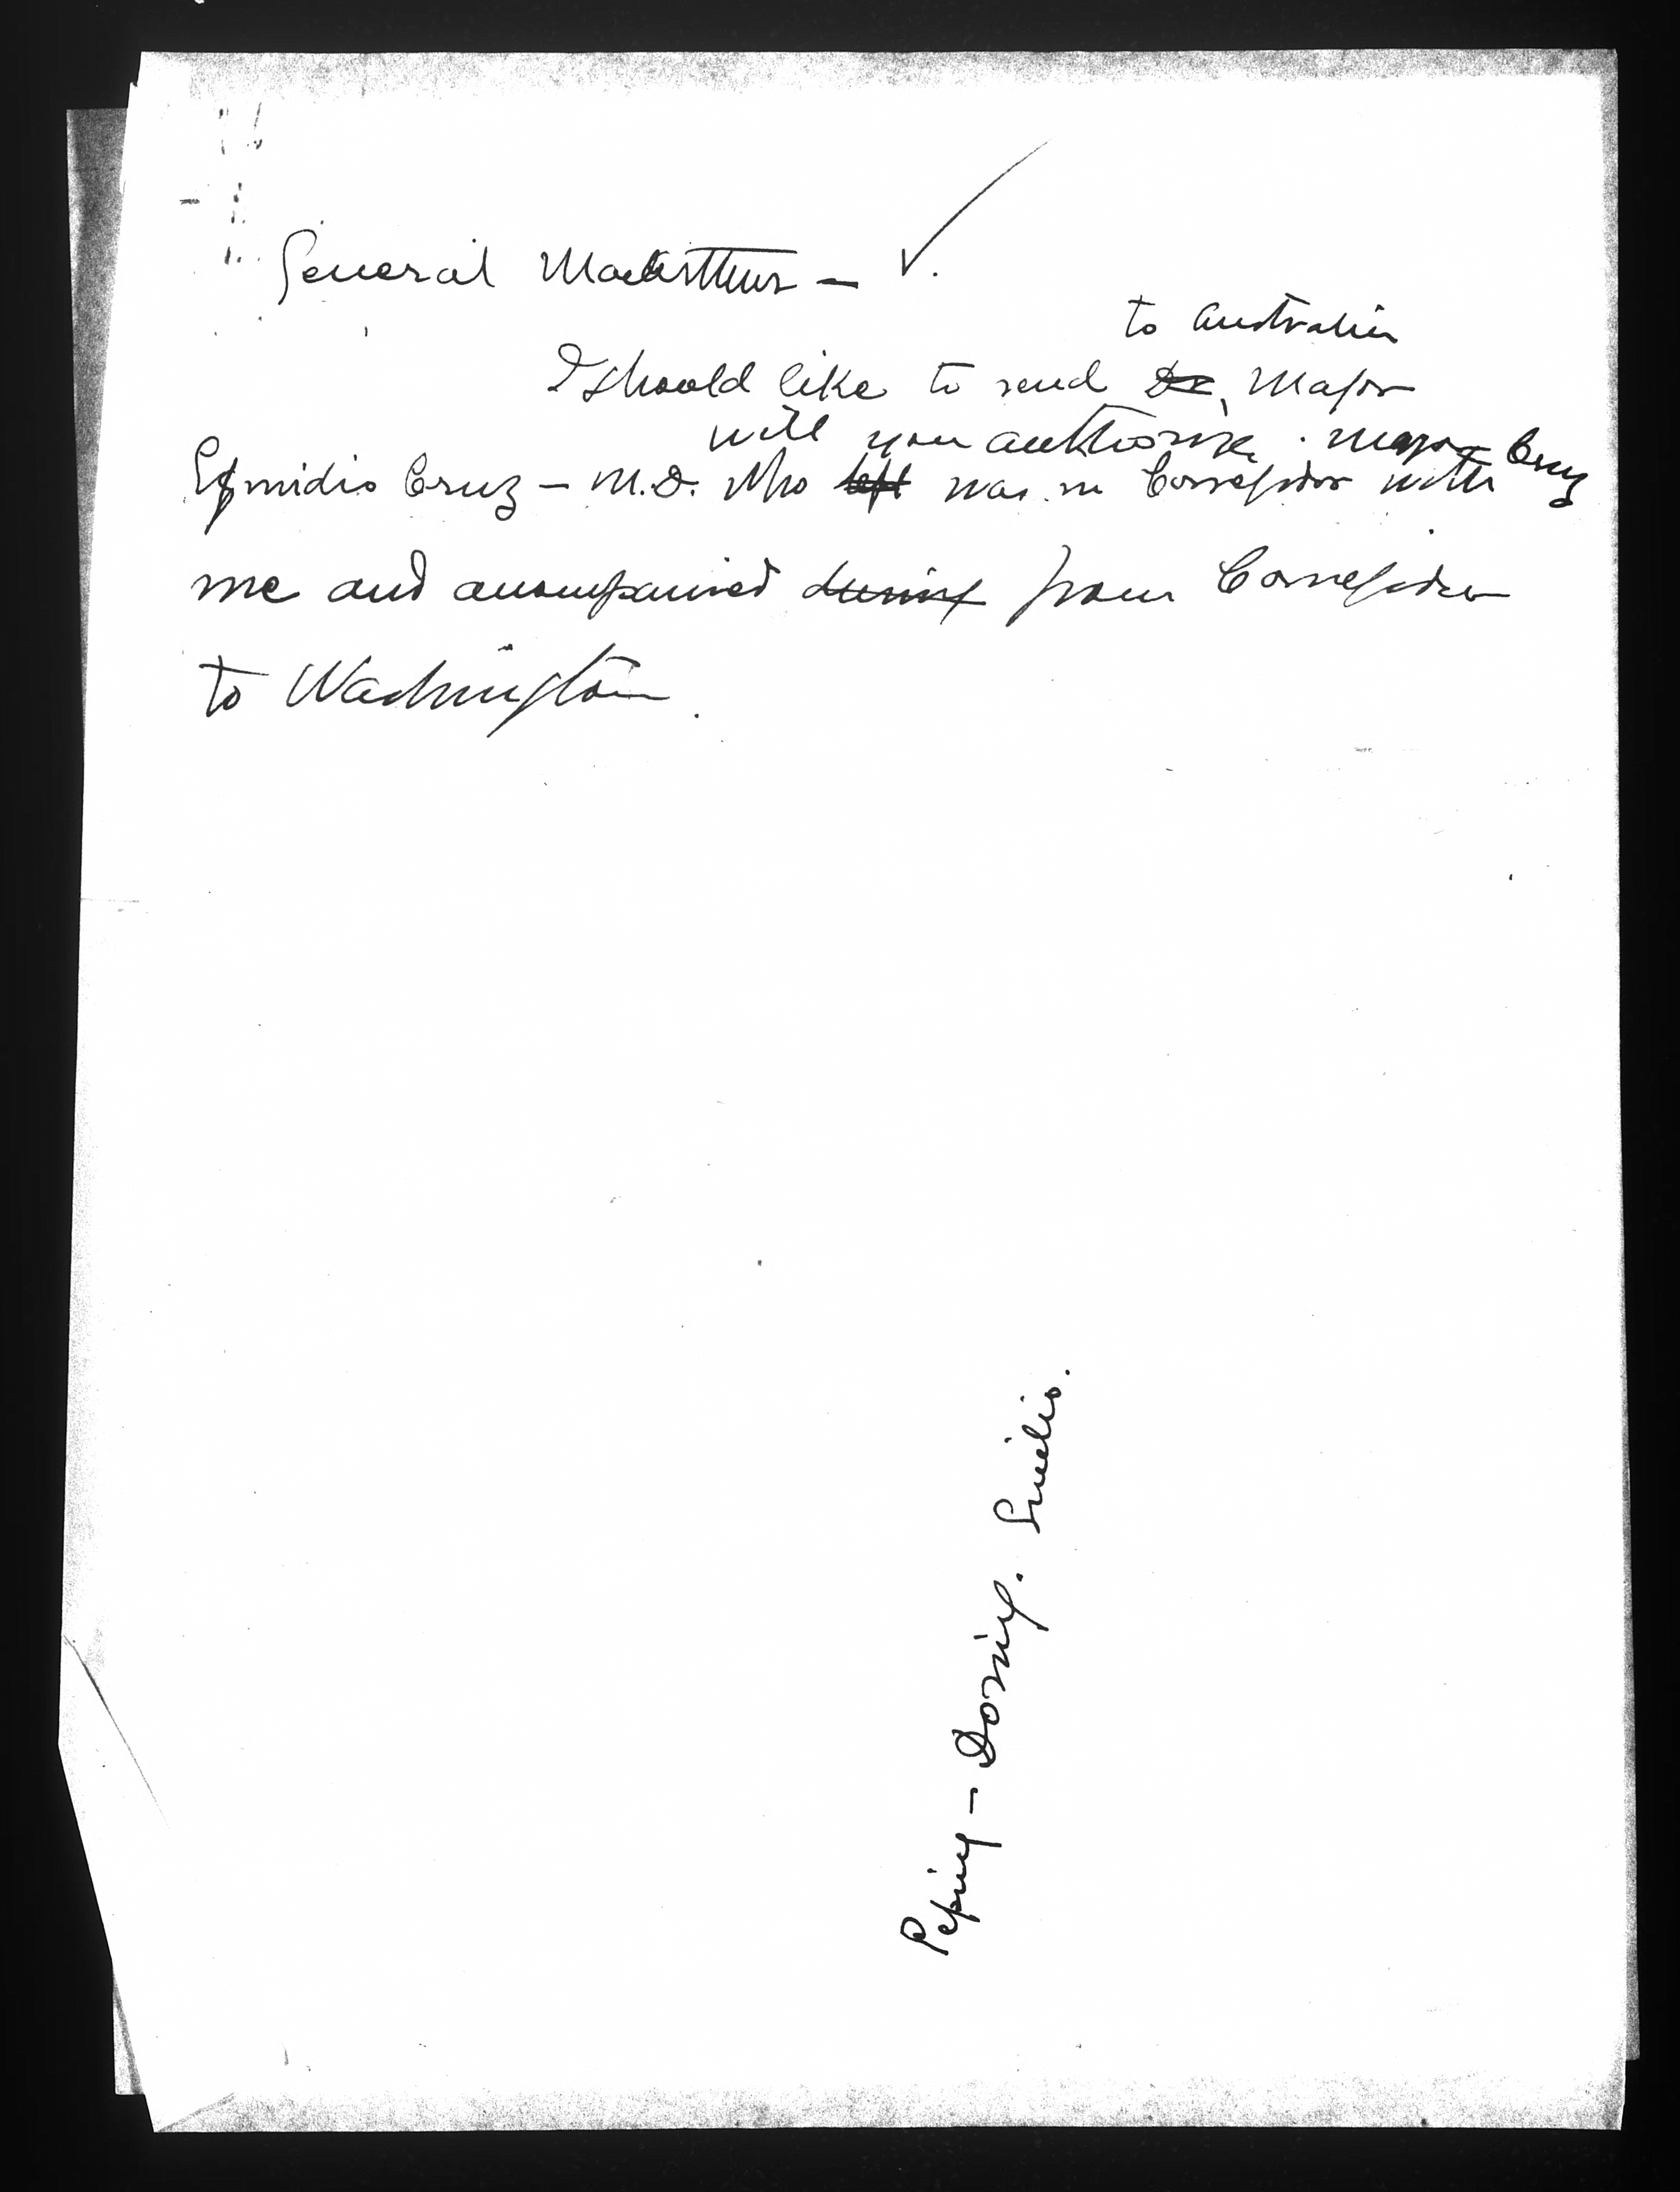 General MacArthur —
to Australia
I should like to send Dr, Major
will you authorize . Major Cruz
Egmidio Cruz — M.D. Who left was in Corregidor with
me and accompanied during from Corregidor
to Washington.
Peping — Doring. Emilio.